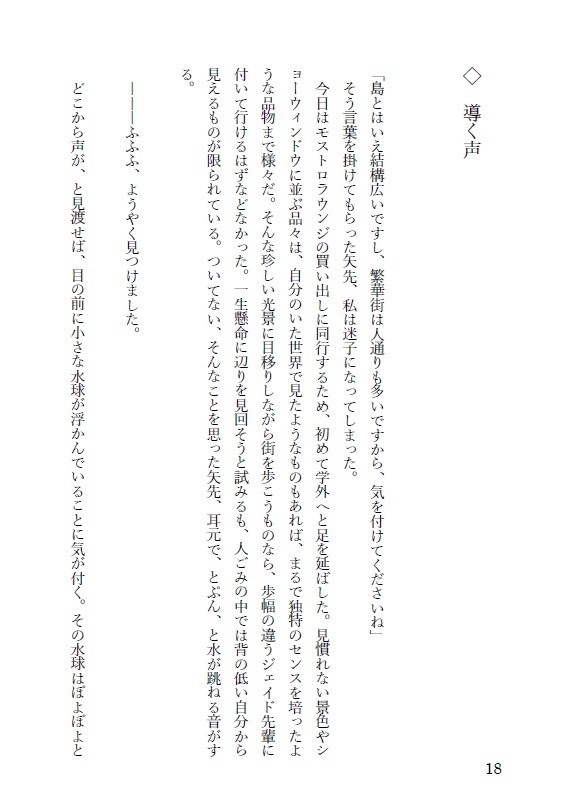 ◇　導く声
「島とはいえ結構広いですし、繁華街は人通りも多いですから、気を付けてくださいね」
　そう言葉を掛けてもらった矢先、私は迷子になってしまった。
　今日はモストロラウンジの買い出しに同行するため、初めて学外へと足を延ばした。見慣れない景色やシ
ョーウィンドウに並ぶ品々は、自分のいた世界で見たようなものもあれば、まるで独特のセンスを培ったよ
うな品物まで様々だ。そんな珍しい光景に目移りしながら街を歩こうものなら、歩幅の違うジェイド先輩に
付いて行けるはずなどなかった。一生懸命に辺りを見回そうと試みるも、人ごみの中では背の低い自分から
見えるものが限られている。ついてない、そんなことを思った矢先、耳元で、とぷん、と水が跳ねる音がす
る。
　―――ふふふ、ようやく見つけました。
　どこから声が、と見渡せば、目の前に小さな水球が浮かんでいることに気が付く。その水球はぽよぽよと
18